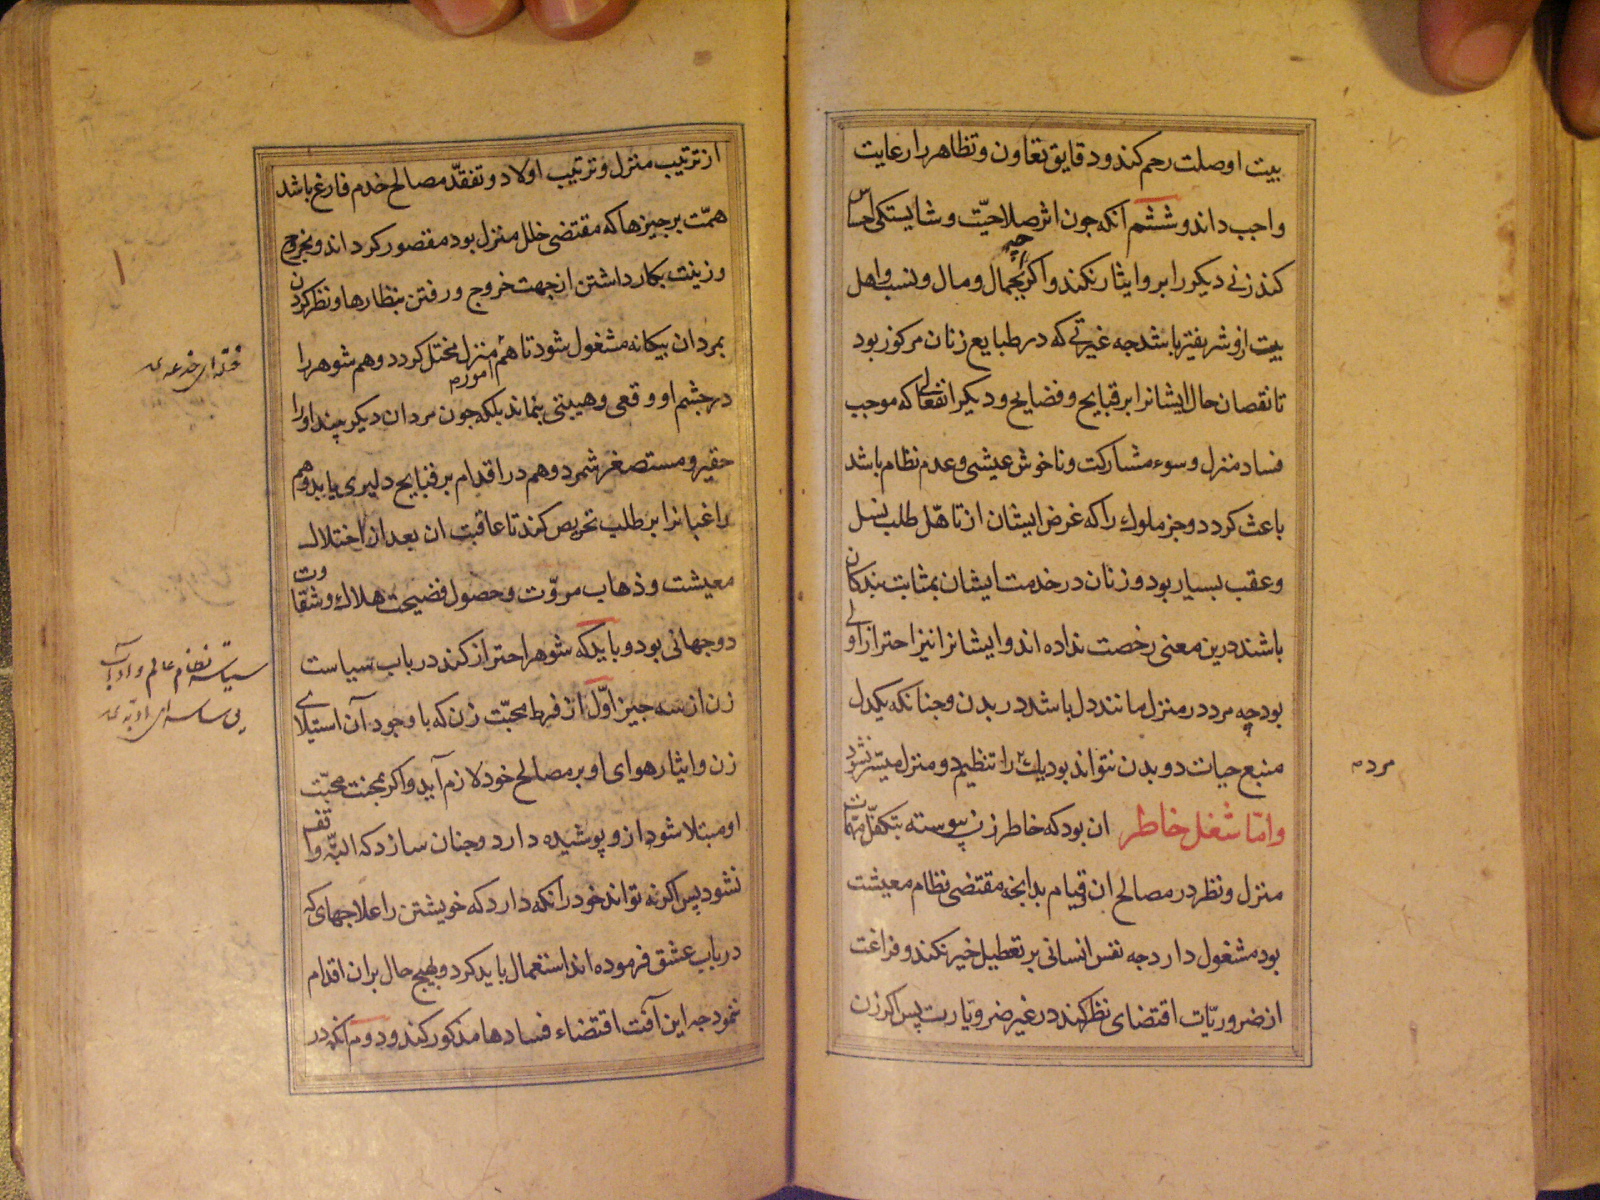 بیت او صلت رحم کند و دقایق تعاون و تظاهر را رعایت
واجب داند و ششم انکه چون اثر صلاحیّت و شایستکی احساس
کند زنی دیکر را بر و ایثار نکند و اکرچه بجمال و مال و نسب و اهل
بیت ازو شریفتر باشد چه غیرتی که در طبایع زنان مرکوز بود
تا نقصان حال ایشانرا بر قبایح و فضایح و دیکر افعالی که موجب
فساد منزل و سوء مشارکت و ناخوش عیشی و عدم نظام باشد
باعث کردد و جز ملوک را که غرض ایشان از تاهّل طلب نسل
و عقب بسیار بود و زنان در خدمت ایشان بمثابت بندکان
باشند درین معنی رخصت نداده اند و ایشانرا نیز احتراز اولی
بود چه مرد در منزل مانند دل باشد در بدن و چنانکه یکدل
منبع حیات دو بدن نتواند بود یک مرد را تنظیم دو منزل میسّر نشود
مردم
و امّا شغل خاطر ان بود که خاطر زن پیوسته بتکفّل مهمّات
منزل و نظر در مصالح ان و قیام بدانچه مقتضی نظام معیشت
بود مشغول دارد چه نفس انسانی بر تعطیل خیر نکند و فراغت
از ضروریّات اقتضای نظر کند در غیر ضروریات پس اکر زن
از ترتیب منزل و ترتیب اولاد و تفقّد مصالح خدم فارغ باشد
همّت بر چیزها که مقتضی خلل منزل بود مقصور کرداند و بخروج
و زینت بکار داشتن از جهت خروج و رفتن بنظارها و نظر کردن
بمردان بیکانه مشغول شود تا هم امور منزل مختل کردد و هم شوهر را
در چشم او وقعی و هیبتی بنماند بلکه چون مردان دیکر بیند او را
حقیر و مستصغر شمرد و هم در اقدام بر قبایح دلیری یابد و هم
راغبانرا بر طلب تحریص کند تا عاقبت ان بعد از اختلال
معیشت و ذهاب مروّت و حصول فضیحت هلاک و شقاوت
دو جهانی بود و باید که شوهر احتراز کند در باب سیاست
زن از سه چیز اوّل از فرط محبّت زن که با وجود آن استیلای
زن و ایثار هوای او بر مصالح خود لازم آید و اکر بمحنت محبّت
او مبتلا شود ازو پوشیده دارد و چنان سازد که البتّه واقف
نشود پس اکر نه تواند خود را نکه دارد که خویشتن را علاجهای که
در باب عشق فرموده اند استعمال باید کرد و بهیچ حال بران اقدام
ننمود چه این آفت اقتضاء فسادها مذکور کند و دوم انکه در